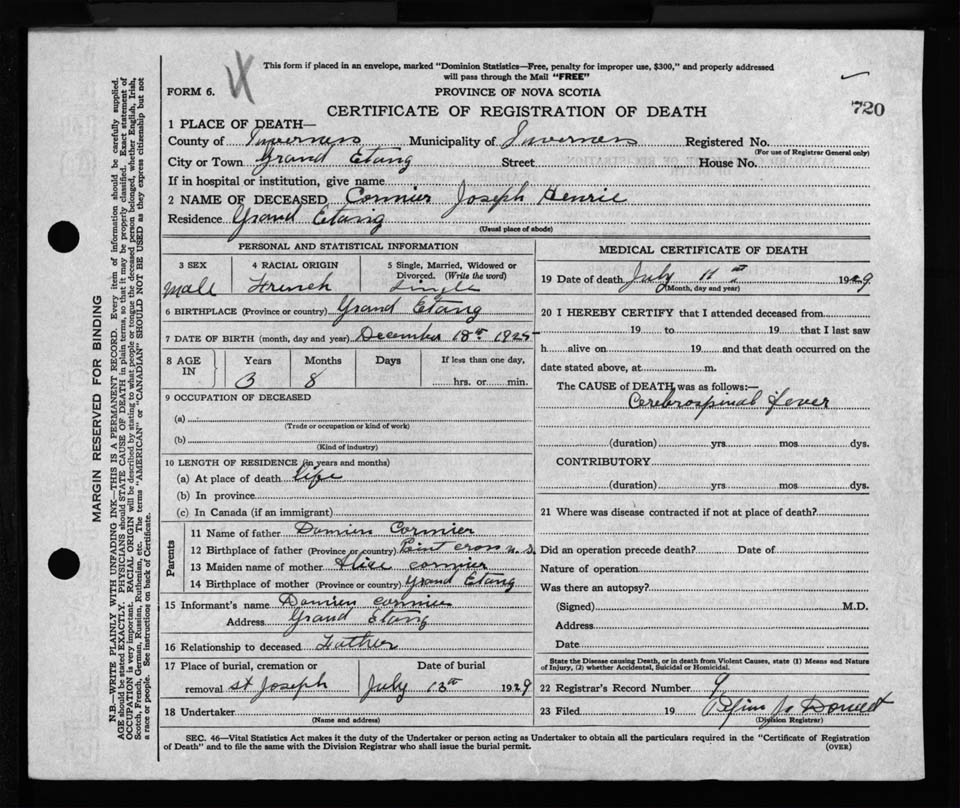 This form if placed in an envelope, marked "Dominion Statistics—Free, penalty for improper use, $300," and properly addressed
will pass through the Mail "FREE"
FORM 6.
PROVINCE OF NOVA SCOTIA
CERTIFICATE OF REGISTRATION OF DEATH
720
1 PLACE OF DEATH—
County of Inverness Municipality of Inverness Registered No.
(For use of Registrar General only)
City or Town Grand Etang Street House No.
If in hospital or institution, give name
2 NAME OF DECEASED Cormier Joseph Henrie
Residence Grand Etang
(Usual place of abode)
PERSONAL AND STATISTICAL INFORMATION
3 SEX 4 RACIAL ORIGIN 5 Single, Married, Widowed or
Divorced. (Write the word)
Male French Single
6 BIRTHPLACE (Province or country) Grand Etang
7 DATE OF BIRTH (month, day and year) December 18th 1925
8 AGE IN Years Months Days If less than one day,
3 8 hrs. or min.
9 OCCUPATION OF DECEASED
(a)
(Trade or occupation or kind of work)
(b)
(Kind of industry)
10 LENGTH OF RESIDENCE (in years and months)
(a) At place of death life
(b) In province
(c) In Canada (if an immigrant)
Parents
11 Name of father Damien Cormier
12 Birthplace of father (Province or country) Point Cross N.S.
13 Maiden name of mother Elise Cormier
14 Birthplace of mother (Province or country) Grand Etang
15 Informant's name Damien Cormier
Address Grand Etang
16 Relationship to deceased Father
17 Place of burial, cremation or Date of burial
removal St Joseph July 13th 1929
18 Undertaker
(Name and address)
MEDICAL CERTIFICATE OF DEATH
19 Date of death July 11th 1929
(Month, day and year)
20 I HEREBY CERTIFY that I attended deceased from
19 to 19 that I last saw
h alive on 19 and that death occurred on the
date stated above, at m.
The CAUSE of DEATH was as follows:—
Cerebrospinal Fever
(duration) yrs. mos dys.
CONTRIBUTORY
(duration) yrs. mos. dys.
21 Where was disease contracted if not at place of death?
Did an operation precede death? Date of
Nature of operation
Was there an autopsy?
(Signed) M.D.
Address
Date
State the Disease causing Death, or in death from Violent Causes, state (1) Means and Nature
of Injury, (2) whether Accidental, Suicidal or Homicidal.
22 Registrar's Record Number 9
23 Filed 19
(Division Registrar)
SEC. 46—Vital Statistics Act makes it the duty of the Undertaker or person acting as Undertaker to obtain all the particulars required in the "Certificate of Registration
of Death" and to file the same with the Division Registrar who shall issue the burial permit.
(OVER)
MARGIN RESERVED FOR BINDING
N.B.—WRITE PLAINLY WITH UNFADING INK—THIS IS A PERMANENT RECORD. Every item of information should be carefully supplied.
AGE should be stated EXACTLY. PHYSICIANS should STATE CAUSE OF DEATH in plain terms, so that it may be properly classified. Exact statement of
OCCUPATION is very important. RACIAL ORIGIN will be described by stating to what people or tongue the deceased person belonged, whether English, Irish,
Scotch, French, German, Russian, Ruthenian, etc. The terms "AMERICAN" or "CANADIAN" SHOULD NOT BE USED as they express citizenship but not
a race or people. See instructions on back of Certificate.